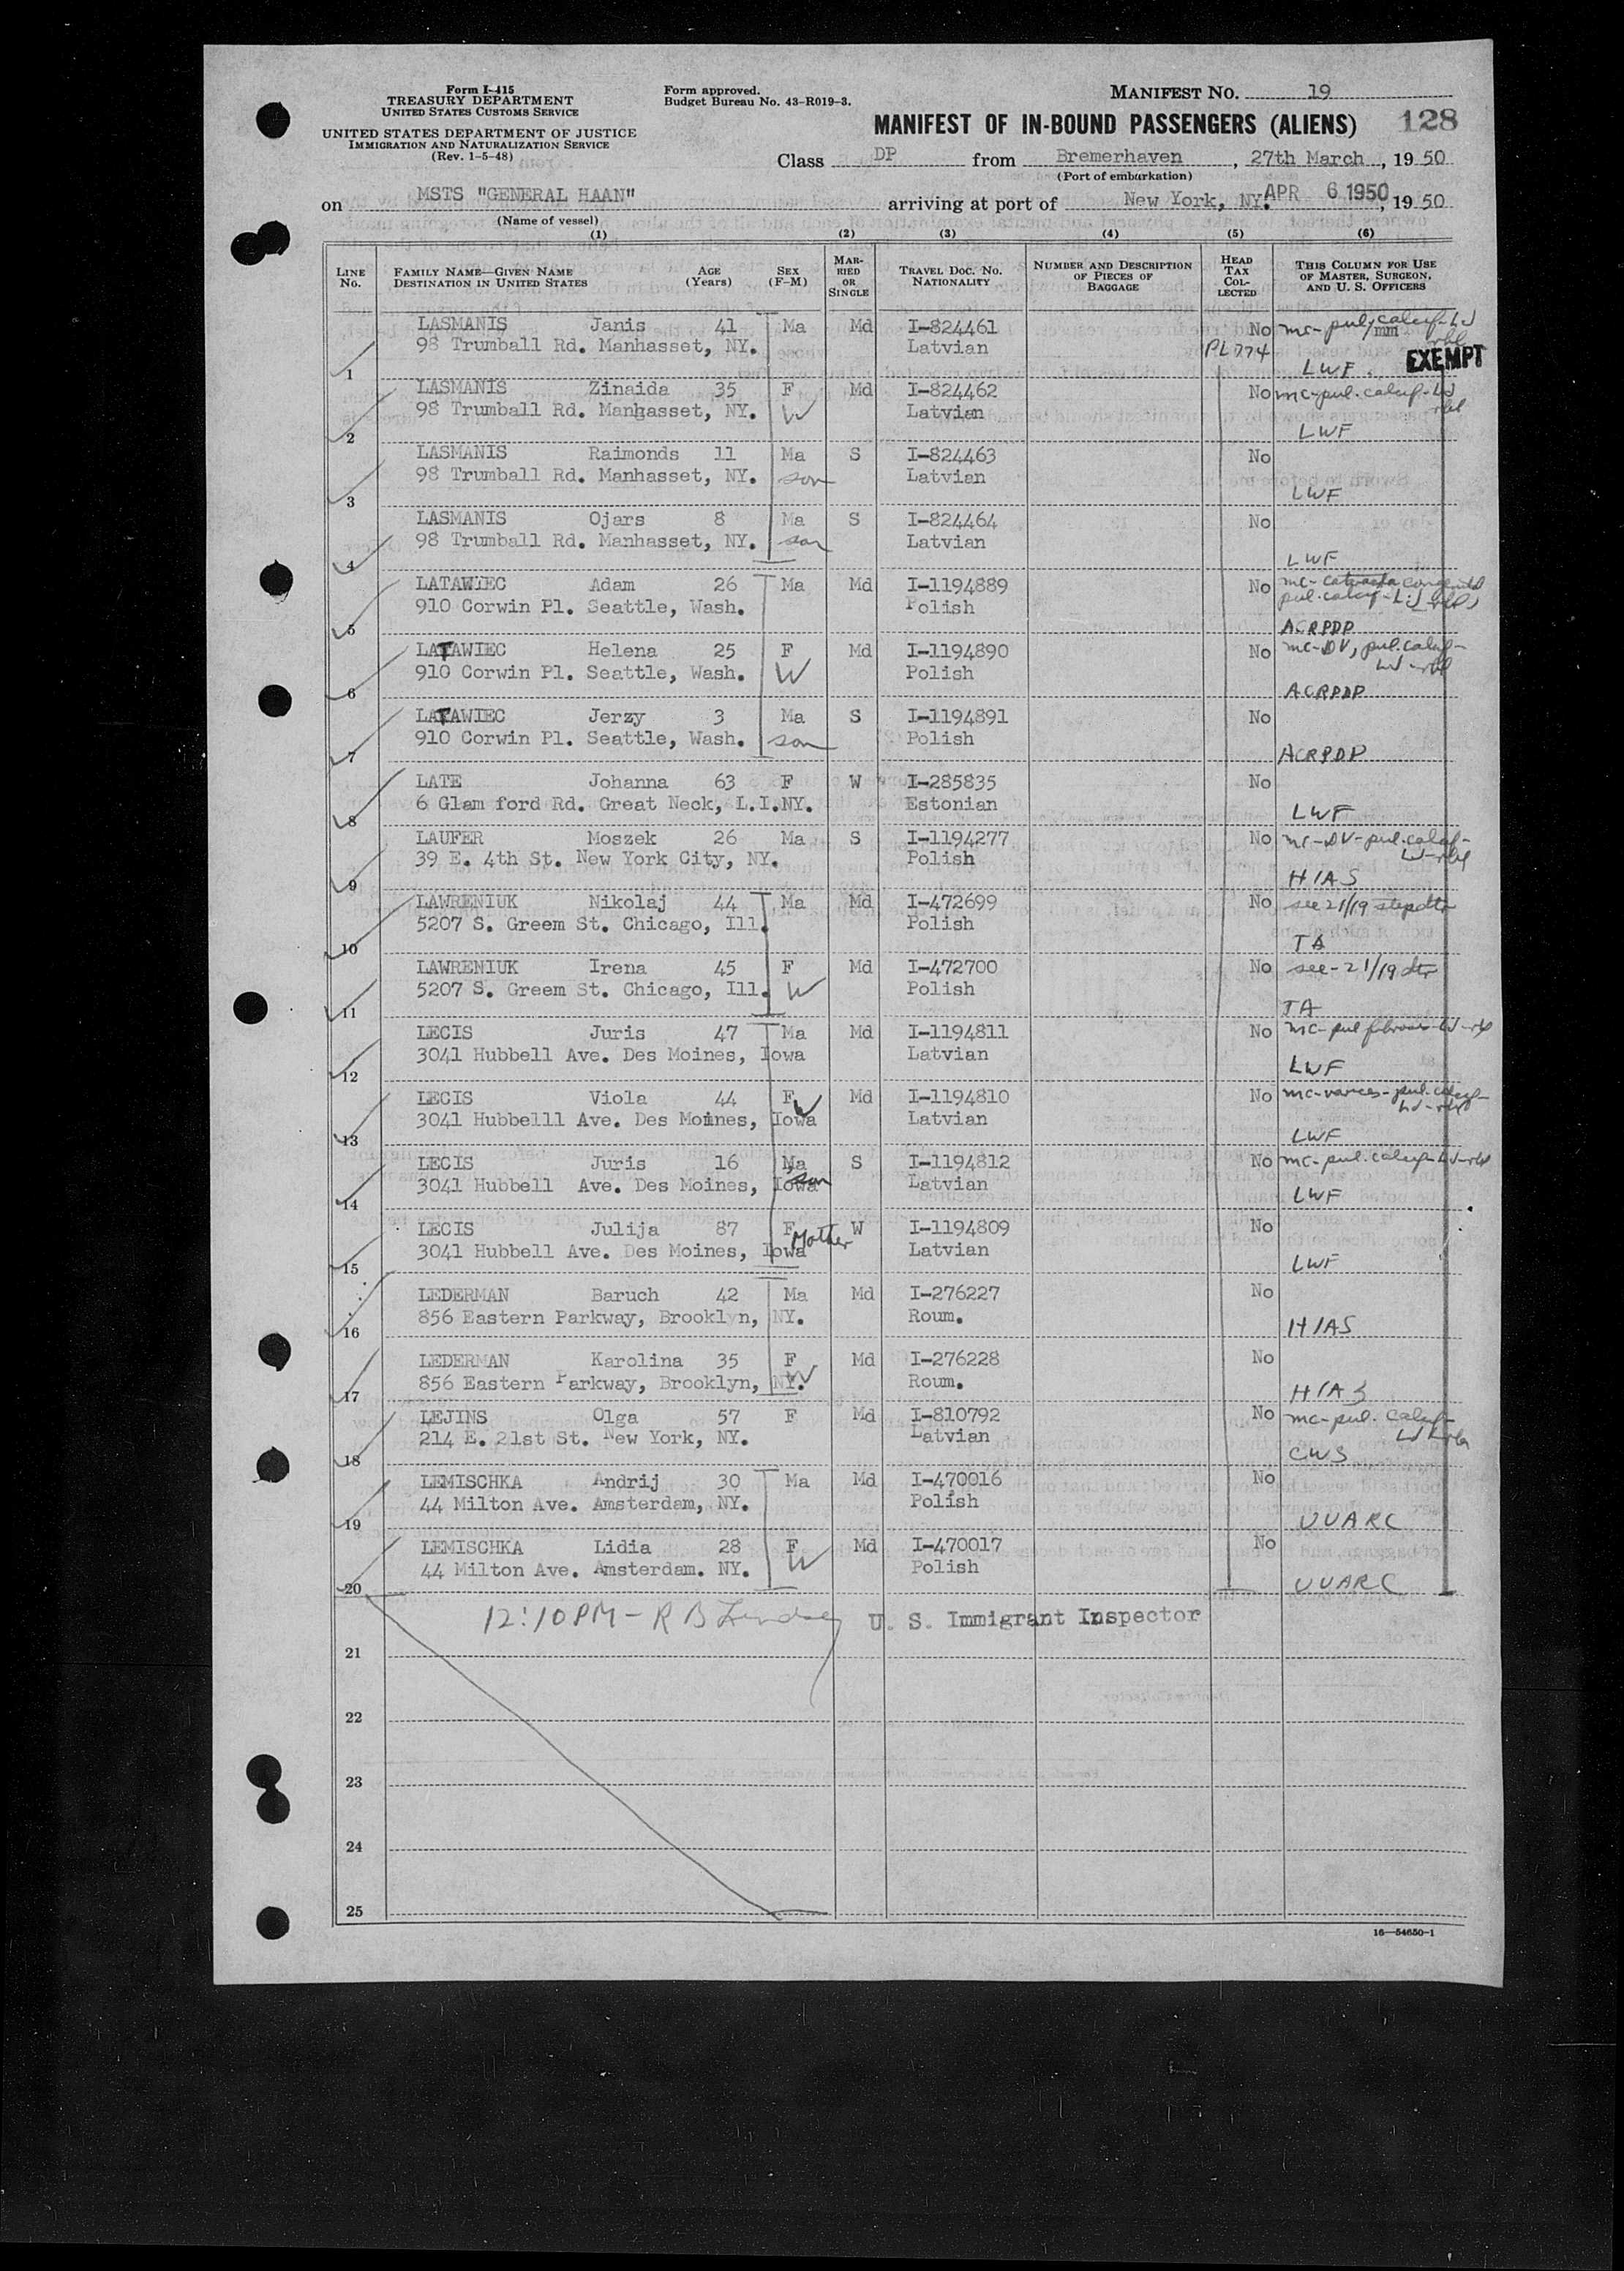 Form I-415
TREASURY DEPARTMENT
UNITED STATES CUSTOMS SERVICE
UNITED STATES DEPARTMENT OF JUSTICE
IMMIGRATION AND NATURALIZATION SERVICE
(Rev. 1-5-48)
Form approved.
Budget Bureau No. 43-R019-3.
MANIFEST NO. 19
MANIFEST OF IN-BOUND PASSENGERS (ALIENS) 128
Class DP from Bremerhaven, 27th March, 1950
(Port of embarkation)
on MSTS "GENERAL HAAN" arriving at port of New York, NY. APR 6 1950, 1950
(Name of vessel)
(1) (2) (3) (4) (5) (6)
LINE No. FAMILY NAME—GIVEN NAME DESTINATION IN UNITED STATES AGE (Years) SEX (F-M) MARRIED OR SINGLE TRAVEL DOC. NO. NATIONALITY NUMBER AND DESCRIPTION OF PIECES OF BAGGAGE HEAD TAX COLLECTED THIS COLUMN FOR USE OF MASTER, SURGEON, AND U. S. OFFICERS
LASMANIS Janis 41 Ma Md I-824461 No mc-pul. calcif-
98 Trumball Rd. Manhasset, NY. Latvian PL774 EXEMPT
1 LWF
LASMANIS Zinaida 35 F Md I-824462 No mc-pul. calcif-
98 Trumball Rd. Manhasset, NY. W Latvian
2 LWF
LASMANIS Raimonds 11 Ma S I-824463 No
98 Trumball Rd. Manhasset, NY. son Latvian
3 LWF
LASMANIS Ojars 8 Ma S I-824464 No
98 Trumball Rd. Manhasset, NY. son Latvian
4 LWF
LATAWIEC Adam 26 Ma Md I-1194889 No mc-
910 Corwin Pl. Seattle, Wash. Polish pul. calcif-
5 ACRPDP
LATAWIEC Helena 25 F Md I-1194890 No mc-DV, pul. calcif-
910 Corwin Pl. Seattle, Wash. W Polish
6 ACRPDP
LATAWIEC Jerzy 3 Ma S I-1194891 No
910 Corwin Pl. Seattle, Wash. son Polish
7 ACRPDP
LATE Johanna 63 F W I-285835 No
6 Glam ford Rd. Great Neck, L.I.NY. Estonian
8 LWF
LAUFER Moszek 26 Ma S I-1194277 No mc-DV-pul. calcif-
39 E. 4th St. New York City, NY. Polish
9 HIAS
LAWRENIUK Nikolaj 44 Ma Md I-472699 No see 21/19 stepdtr
5207 S. Greem St. Chicago, Ill. Polish
10 TA
LAWRENIUK Irena 45 F Md I-472700 No see-21/19 dtr
5207 S. Greem St. Chicago, Ill. W Polish
11 TA
LECIS Juris 47 Ma Md I-1194811 No mc-pul fibrosis-
3041 Hubbell Ave. Des Moines, Iowa Latvian
12 LWF
LECIS Viola 44 F W Md I-1194810 No mc-varices-pul. calcif-
3041 Hubbelll Ave. Des Moines, Iowa Latvian
13 LWF
LECIS Juris 16 Ma S I-1194812 No mc-pul. calcif-
3041 Hubbell Ave. Des Moines, Iowa son Latvian
14 LWF
LECIS Julija 87 F Mother W I-1194809 No
3041 Hubbell Ave. Des Moines, Iowa Latvian
15 LWF
LEDERMAN Baruch 42 Ma Md I-276227 No
856 Eastern Parkway, Brooklyn, NY. Roum.
16 HIAS
LEDERMAN Karolina 35 F Md I-276228 No
856 Eastern Parkway, Brooklyn, NY. W Roum.
17 HIAS
LEJINS Olga 57 F Md I-810792 No mc-pul. calcif-
214 E. 21st St. New York, NY. Latvian
18 CWS
LEMISCHKA Andrij 30 Ma Md I-470016 No
44 Milton Ave. Amsterdam, NY. Polish
19 UUARC
LEMISCHKA Lidia 28 F Md I-470017 No
44 Milton Ave. Amsterdam. NY. W Polish
20 UUARC
12:10 PM - R B Lindsey U. S. Immigrant Inspector
21
22
23
24
25
16—54650-1